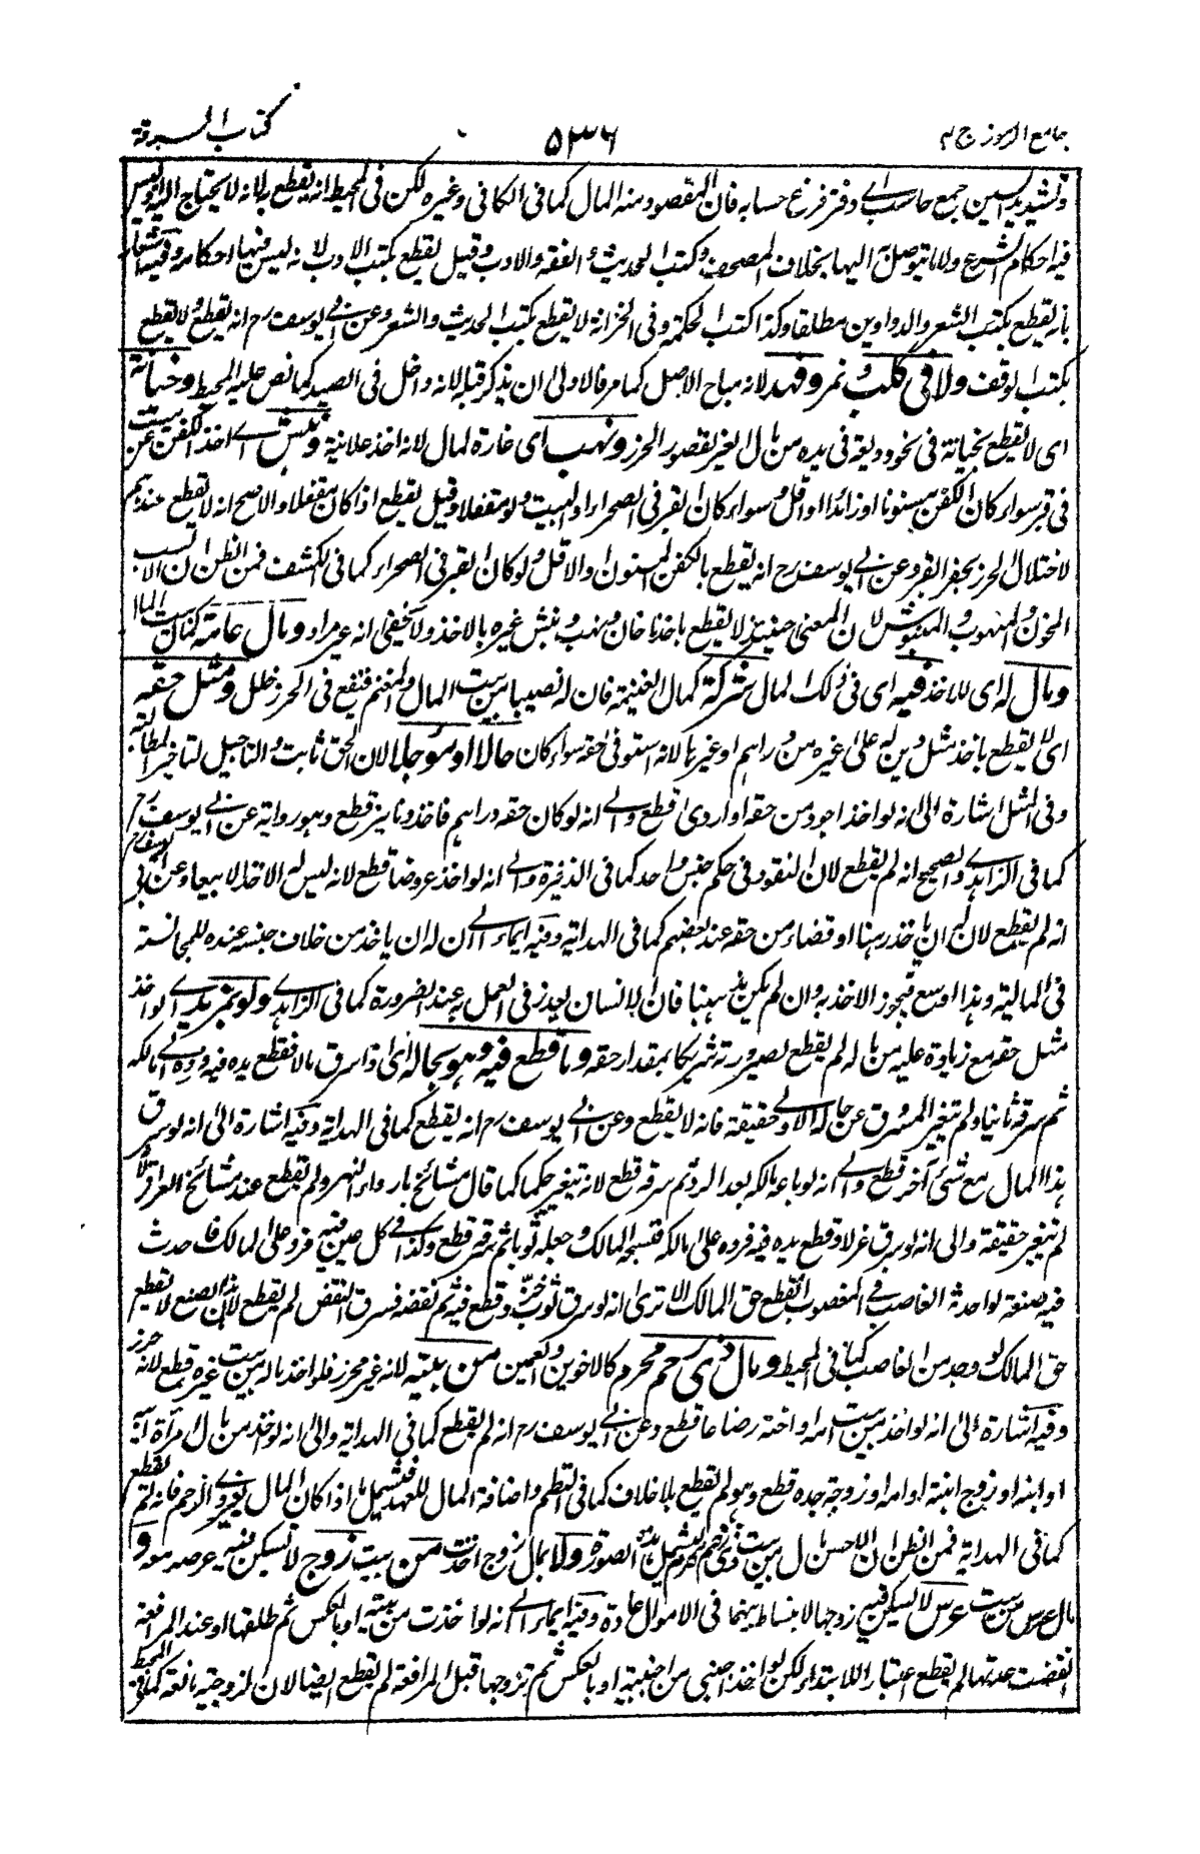 جامع الرموز ج ٢
٥٣٦
كتاب السرقة
وتشديد السين جمع حاسب اى دفتر فرغ حسابه فان المقصود منه المال كما فى الكافى وغيره لكن فى المحيط انه يقطع بها لانه لا يحتاج اليه وليس
فيه احكام الشرع ولا ما يتوصل به اليها بخلاف المصحف وكتب الحديث والفقه والادب وقيل يقطع بكتب الادب لانه ليس فيها احكامه وفيه اشعار
بانه يقطع بكتب الشعر والدواوين مطلقا وكذا كتب الحكمة وفى الخزانة لا يقطع بكتب الحديث والشعر وعن ابى يوسف رح انه يقطع ولا يقطع
بكتب الوقف ولا فى كلب ونمر وفهد لانه مباح الاصل كما مر فالاولى ان يذكر قبله لانه داخل فى الصيد كما نص عليه المحيط وخيانة
اى لا يقطع بخيانة فى نحو وديعة فى يده من مال الغير لقصور الحرز ونهب اى غارة لمال لانه اخذ علانية ونبش اى اخذ الكفن عن ميت
فى قبر سواء كان الكفن مسنونا او زائدا او اقل وسواء كان القبر فى الصحراء او البيت ولو مقفلا وقيل يقطع اذا كان مقفلا والاصح انه لا يقطع عندهم
لاختلال الحرز بحفر القبر وعن ابى يوسف رح انه يقطع بالكفن المسنون والاقل ولو كان القبر فى الصحراء كما فى الكشف فمن الظن ان الانسب
المخون والمنهوب والمنبوش لان المعنى حينئذ لا يقطع باخذ ما خان ونهب ونبش غيره بالاخذ ولا يخفى انه غير مراد ومال عامة كمال بيت المال
ومال له اى للاخذ فيه اى فى ذلك المال شركة كمال الغنيمة فان له نصيبا من بيت المال والمغنم فيقع فى الحرز خلل ومثل حقه
اى لا يقطع باخذ مثل دين له على غيره من دراهم او غيرها لانه استوفى حقه سواء كان حالا او مؤجلا لان الحق ثابت والتاجيل لتاخير المطالبة
وفى المثل اشارة الى انه لو اخذ اجود من حقه او اردى قطع والى انه لو كان حقه دراهم فاخذ دنانير قطع وهو رواية عن ابى يوسف رح
كما فى الزاهدى والصحيح انه لم يقطع لان النقود فى حكم جنس واحد كما فى الذخيرة والى انه لو اخذ عروضا قطع لانه ليس له الاخذ الا بيعا وعن ابى يوسف رح
انه لم يقطع لان له ان ياخذ رهنا او قضاء من حقه عند بعضهم كما فى الهداية وفيه ايماء الى ان له ان ياخذ من خلاف جنسه عنده للمجانسة
فى المالية وهذا اوسع فيجوز الاخذ به وان لم يكن مذهبنا فان الانسان يعذر فى العمل به عند الضرورة كما فى الزاهدى ولو بمزيد اى لو اخذ
مثل حقه مع زيادة عليه من ماله لم يقطع لصيرورته شريكا بمقدار حقه وما قطع فيه وهو بحاله اى اذا سرق مالا فقطع يده فيه ورده الى مالكه
ثم سرقه ثانيا ولم تتغير المسروق عن حاله الاولى حقيقة فانه لا يقطع وعن ابى يوسف رح انه يقطع كما فى الهداية وفيه اشارة الى انه لو سرق
هذا المال مع شئ آخر قطع والى انه لو باعه مالكه بعد الرد ثم سرقه قطع لانه تغير حكما كما قال مشائخ ماوراء النهر ولم يقطع عند مشائخ العراق لانه
لم يتغير حقيقة والى انه لو سرق غزلا وقطع يده فيه فرده على مالكه فنسجه المالك وجعله ثوبا ثم سرقه قطع وكذا فى كل عين فرد على المالك فاحدث
فيه صنعة لو احدثه الغاصب فى المغصوب انقطع حق المالك الا ترى انه لو سرق ثوب خز وقطع فيه ثم نقضه فسرق النقض لم يقطع لان هذا الصنع لا يقطع
حق المالك لو وجد من الغاصب كما فى المحيط ومال ذى رحم محرم كالاخوين والعمين من بيته لانه غير محرز فلو اخذ ماله من بيت غيره قطع لانه حرز
وفيه اشارة الى انه لو اخذ من بيت امه او اخته رضاعا قطع وعن ابى يوسف رح انه لم يقطع كما فى الهداية والى انه لو اخذ من مال امرأة ابيه
او ابنه او زوج ابنته او امه او زوجة جده قطع وهو لم يقطع بلا خلاف كما فى النظم واضافة المال للعهد فيشمل ما اذا كان المال لغير ذى الرحم فانه لم يقطع
كما فى الهداية فمن الظن ان الاحسن مال من بيت ذى رحم محرم ليشمل هذه الصورة ولا بمال زوج اخذت من بيت زوج لا تسكن فيه عرسه و
مال عرس من بيت عرس لا يسكن فيه زوجها لانبساط بينهما فى الاموال عادة وفيه ايماء الى انه لو اخذت من بيته او بالعكس ثم طلقها او عند المرافعة
انقضت عدتها لم يقطع اعتبارا للابتداء لكن لو اخذ اجنبى من اجنبية او بالعكس ثم تزوجها قبل المرافعة لم يقطع ايضا لان الزوجية مانعة كما فى المحيط